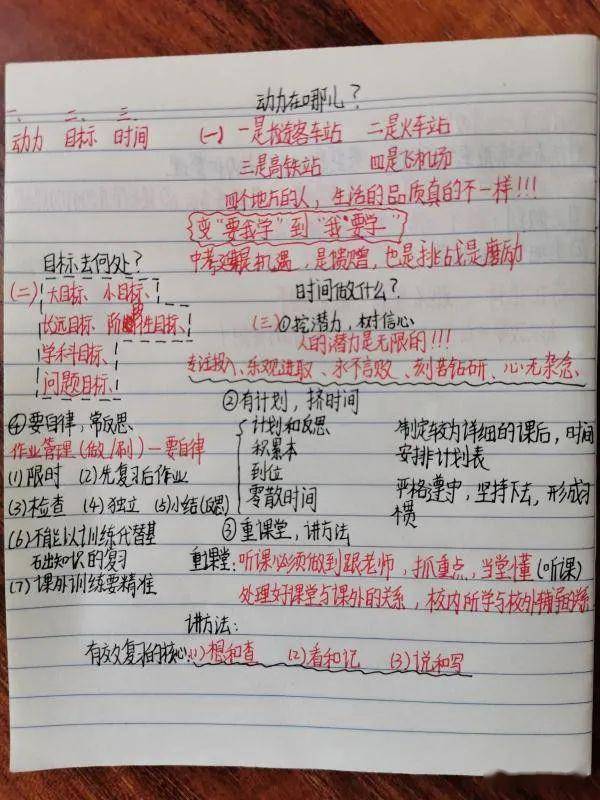 动力在哪儿？
一、 二、 三、
动力 目标 时间 (一) 一是长途客车站 二是火车站
三是高铁站 四是飞机场
四个地方的人，生活的品质真的不一样!!!
变“要我学”到“我要学”
中考延是机遇，是馈赠，也是挑战是磨励
目标去何处？
时间做什么？
(二) 大目标、小目标、
长远目标、阶段性目标、
学科目标、
问题目标、
(三) ①挖潜力，树信心
人的潜力是无限的!!!
专注投入、乐观进取、永不言败、刻苦钻研、心无杂念、
②有计划，挤时间
计划和反思
积累本
到位
零散时间
制定较为详细的课后，时间
安排计划表
严格遵守，坚持下去，形成习
惯
④要自律，常反思
作业管理(做/刷)一要自律
(1)限时 (2)先复习后作业
(3)检查 (4)独立 (5)小结(反思)
(6)不能以训练代替基
础知识的复习
(7)课外训练要精准
③重课堂，讲方法
重课堂：听课必须做到跟老师，抓重点，当堂懂(听课)
处理好课堂与课外的关系，校内所学与校外辅导的关系.
讲方法：
有效复习的核心：(1)想和查 (2)看和记 (3)说和写